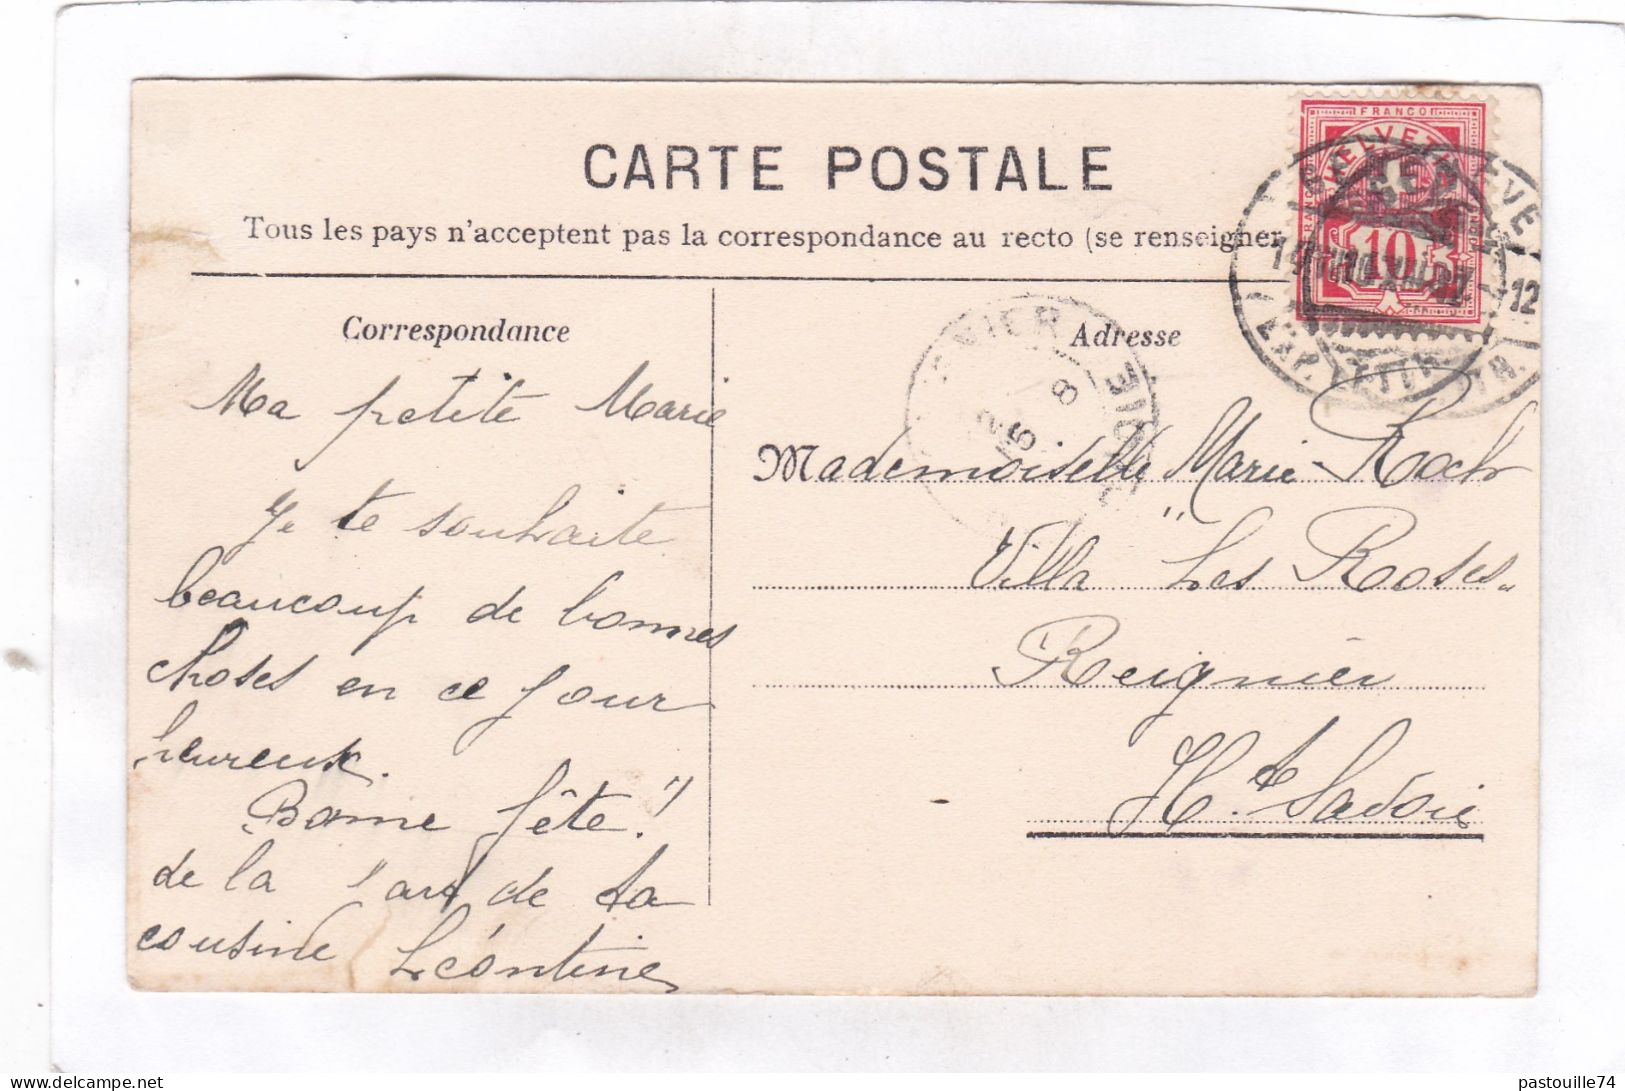 CARTE POSTALE
Tous les pays n'acceptent pas la correspondance au recto (se renseigner
Correspondance
Ma petite Marie
Je te souhaite
beaucoup de bonnes
choses en ce jour
heureux.
Bonne fête!
de la part de ta
cousine Léontine
Adresse
Mademoiselle Marie Roch
Villa "Les Roses"
Reignier
Hte Savoie
FRANCO
HELVETIA
10
12
EXP. LETTR.
8
pastouille74